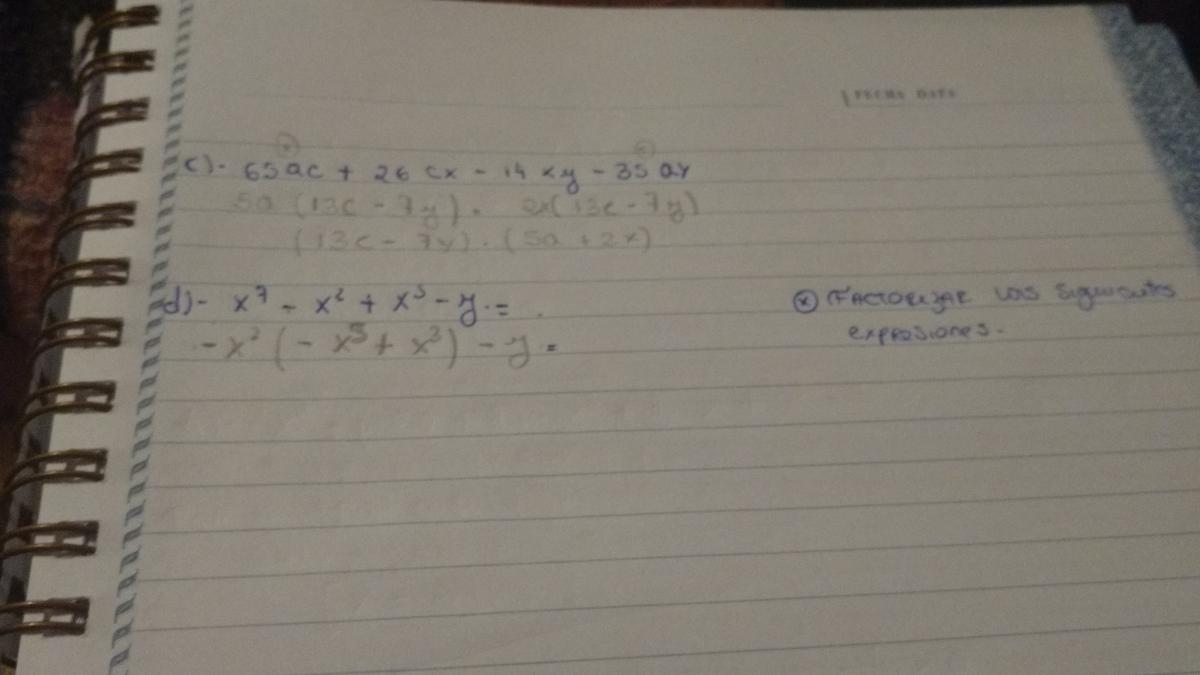 FECHA DATE
c)- 65ac + 26 cx - 14 xy - 35 ay
5a (13c - 7y) . 2x(13c - 7y)
(13c - 7y) . (5a + 2x)
d)- x⁷ - x² + x⁵ - y.=
-x² (- x⁵ + x³) - y =
(x) FACTORIZAR LAS Siguientes
expresiones.